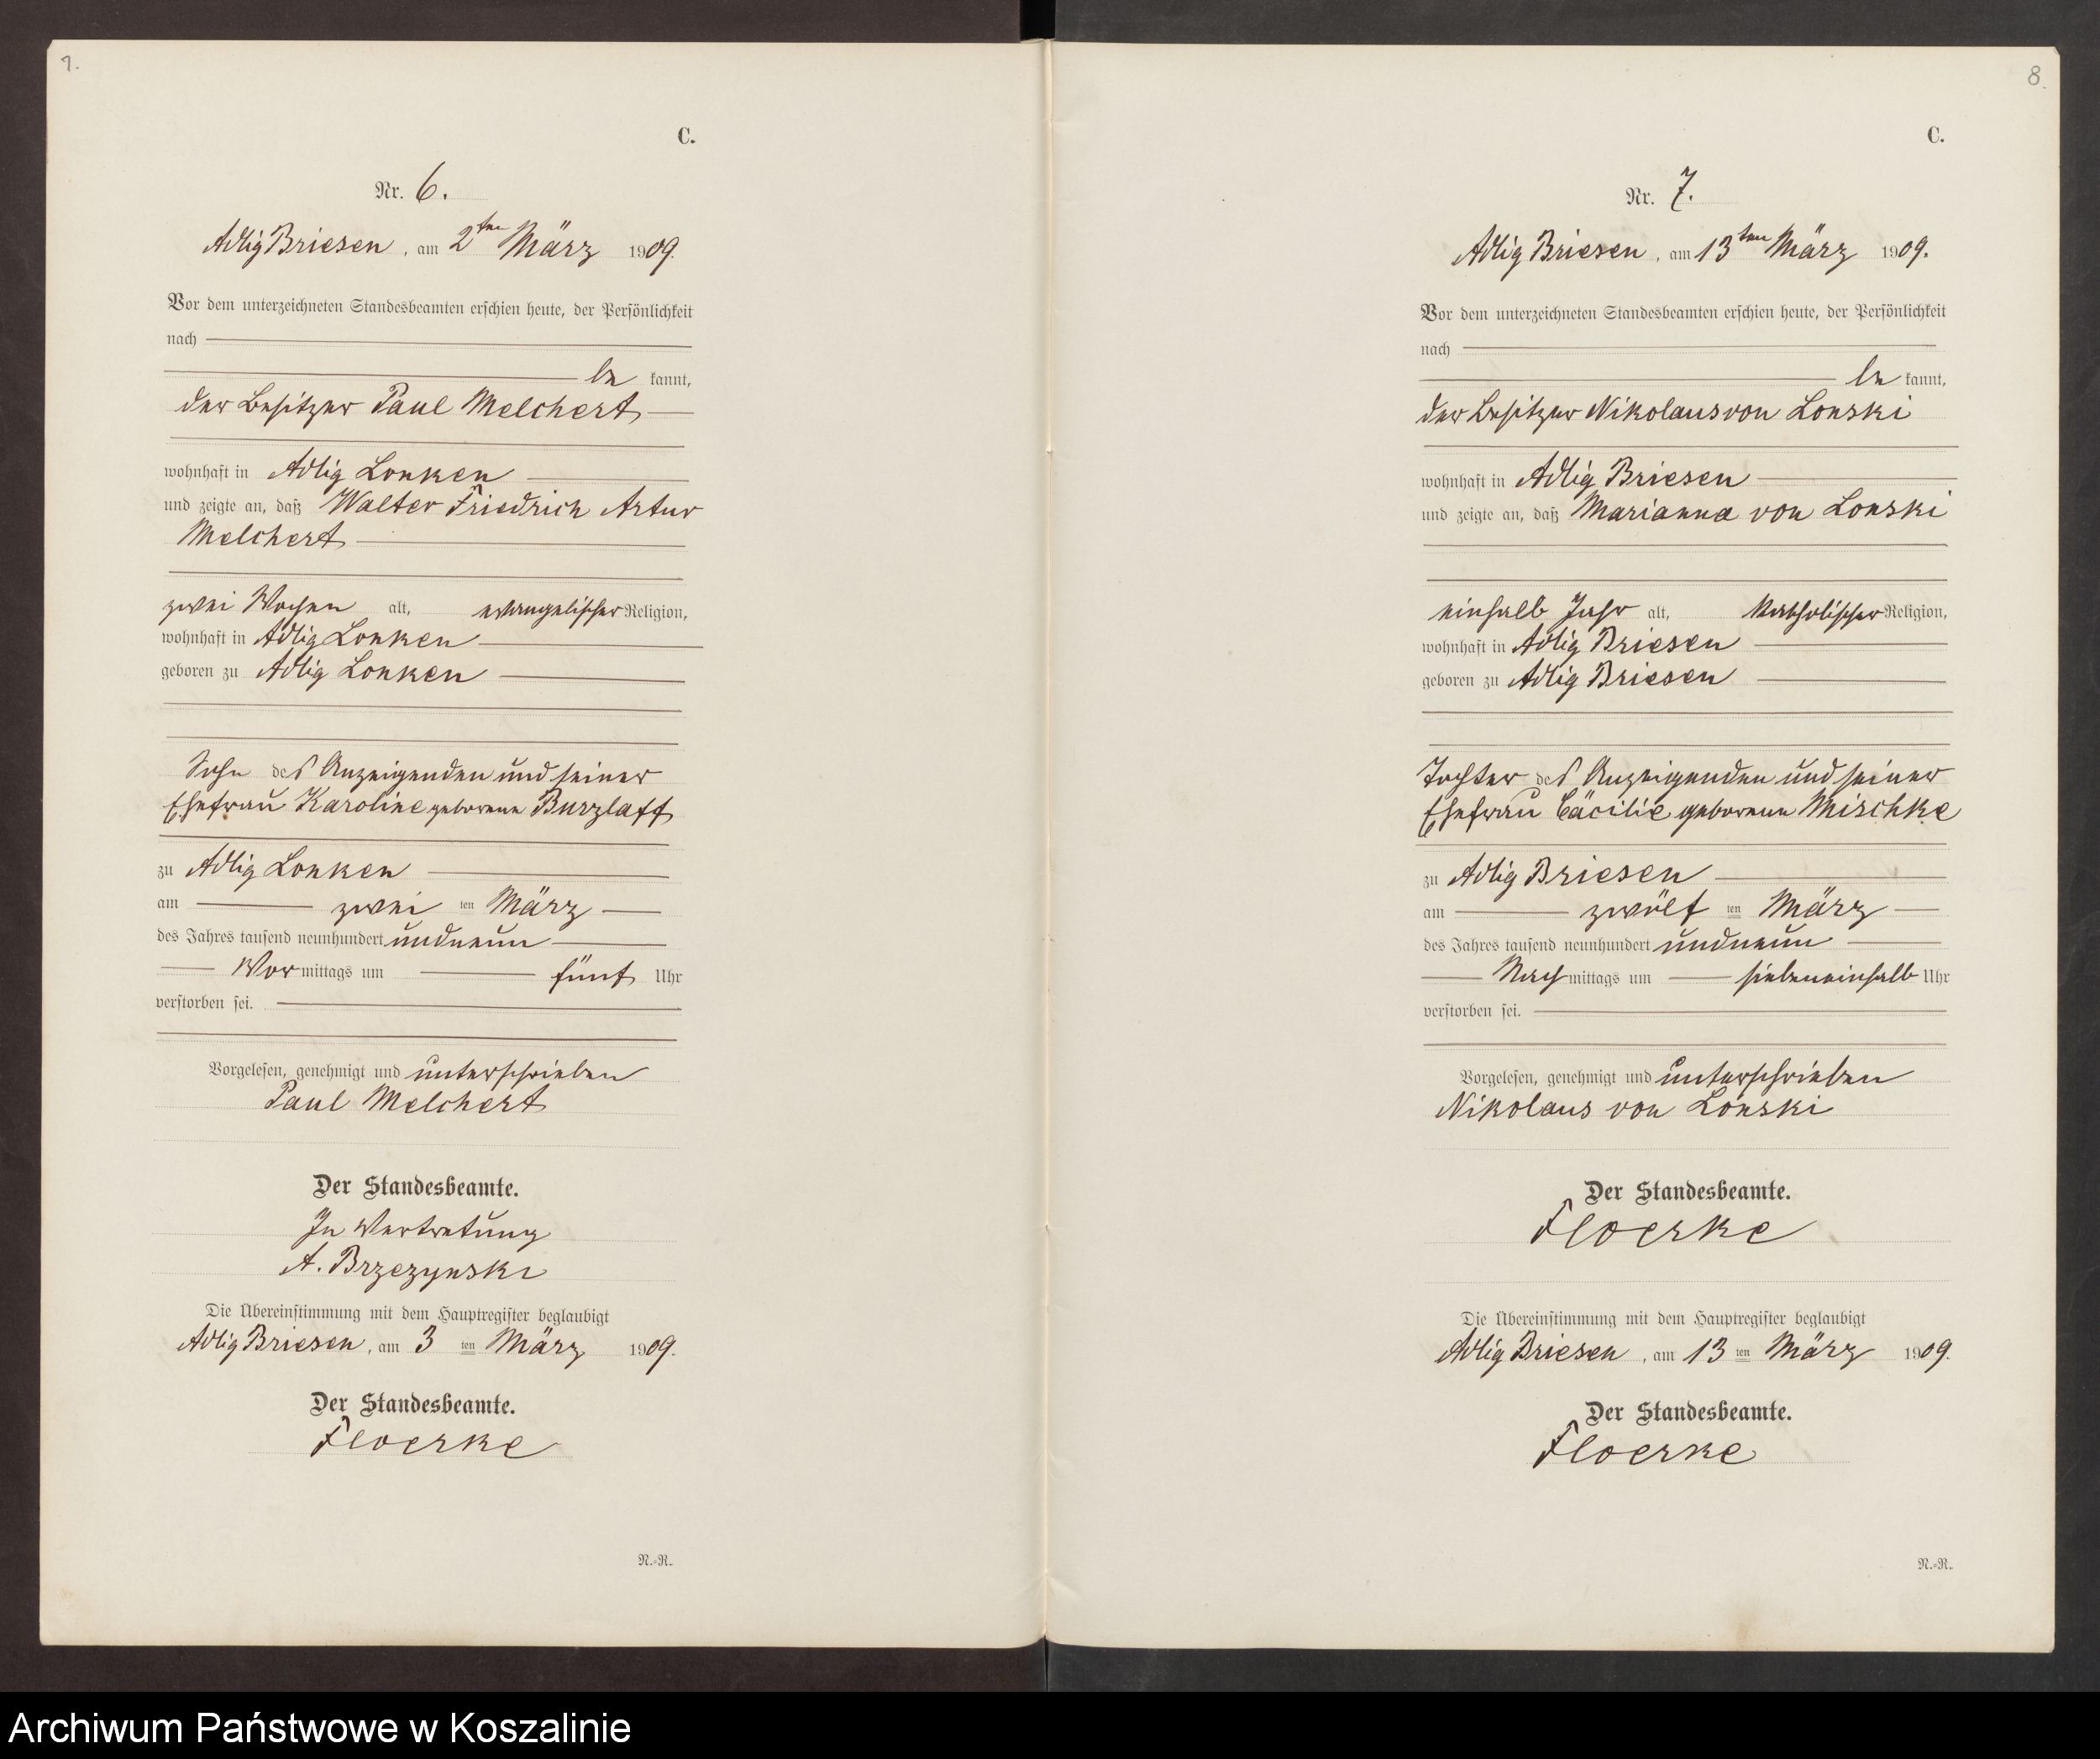 7.
C.
Nr. 6.
Adlig Briesen, am 2ten März 1909.
Vor dem unterzeichneten Standesbeamten erschien heute, der Persönlichkeit
nach
be kannt,
der Besitzer Paul Melchert
wohnhaft in Adlig Lonken
und zeigte an, daß Walter Friedrich Artur
Melchert
zwei Wochen alt, evangelischer Religion,
wohnhaft in Adlig Lonken
geboren zu Adlig Lonken
Sohn des Anzeigenden und seiner
Ehefrau Karoline geborene Burzlaff
zu Adlig Lonken
am zwei ten März
des Jahres tausend neunhundert undneun
Vor mittags um fünf Uhr
verstorben sei.
Vorgelesen, genehmigt und unterschrieben
Paul Melchert
Der Standesbeamte.
In Vertretung
A. Brzezynski
Die Übereinstimmung mit dem Hauptregister beglaubigt
Adlig Briesen, am 3 ten März 1909.
Der Standesbeamte.
Floerke
N.-R.
8.
C.
Nr. 7.
Adlig Briesen, am 13ten März 1909.
Vor dem unterzeichneten Standesbeamten erschien heute, der Persönlichkeit
nach
be kannt,
der Besitzer Nikolaus von Lonski
wohnhaft in Adlig Briesen
und zeigte an, daß Marianna von Lonski
einhalb Jahr alt, katholischer Religion,
wohnhaft in Adlig Briesen
geboren zu Adlig Briesen
Tochter des Anzeigenden und seiner
Ehefrau Cäcilie geborene Mischke
zu Adlig Briesen
am zwölf ten März
des Jahres tausend neunhundert undneun
Nach mittags um siebeneinhalb Uhr
verstorben sei.
Vorgelesen, genehmigt und unterschrieben
Nikolaus von Lonski
Der Standesbeamte.
Floerke
Die Übereinstimmung mit dem Hauptregister beglaubigt
Adlig Briesen, am 13 ten März 1909.
Der Standesbeamte.
Floerke
N.-R.
Archiwum Państwowe w Koszalinie